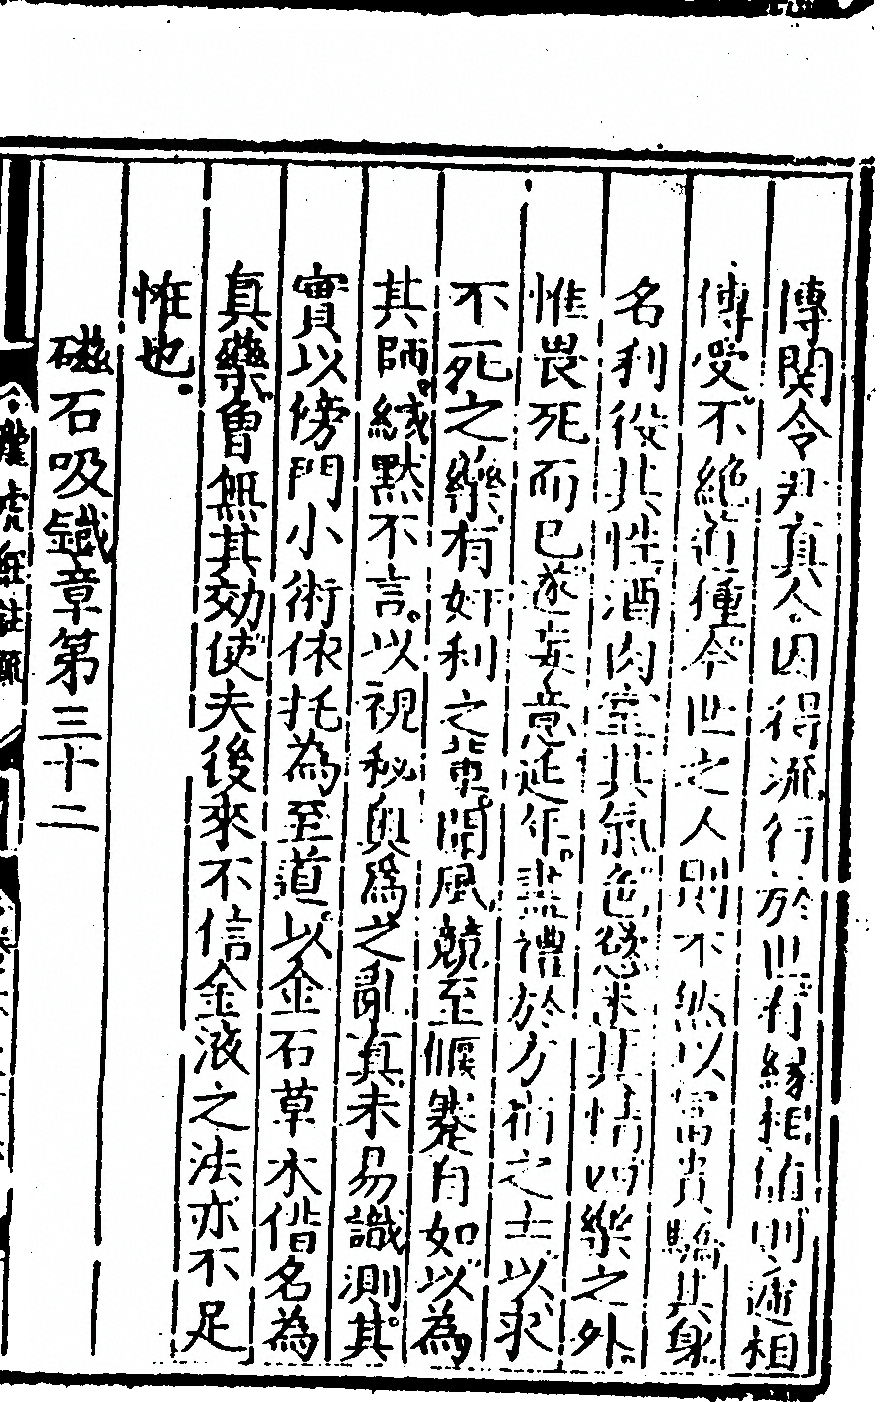 傳関令尹真人因得流行於世有緣相值則遞相
傳受不絶道種今世之人則不然以富貴驕其身
名利役其性酒肉室其氣色慾迷其情四樂之外
惟畏死而已遂妄意延年盡禮於方術之士以求
不死之藥有奸利之輩聞風競至偃蹇自如以為
其師緘默不言以視秘奥爲之亂真未易識測其
實以傍門小術依托為至道以金石草木偕名為
真藥曾無其効使夫後來不信金液之法亦不足
恠也
磁石吸鐵章第三十二
龍虎經註疏